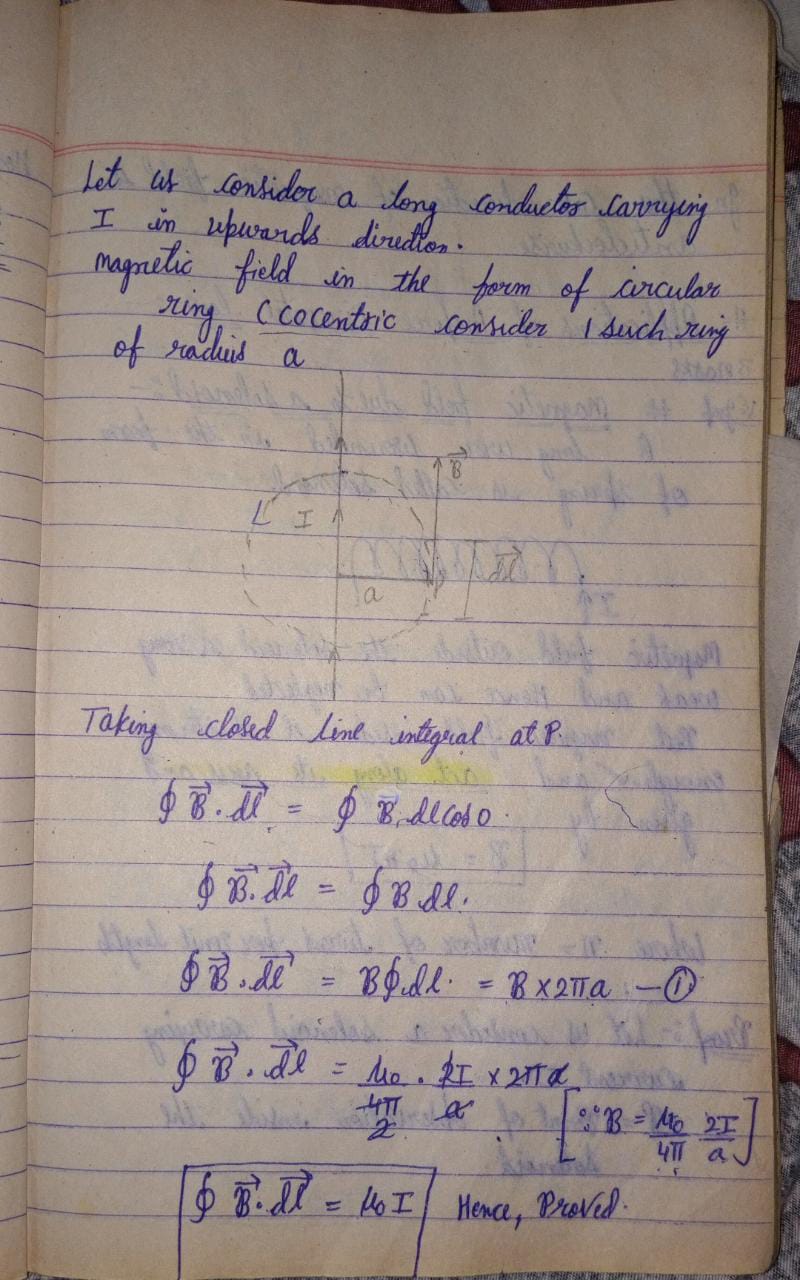 Let us consider a long conductor carrying
I in upwards diretion.
magnetic field in the form of circular
ring (cocentric consider 1 such ring
of radius a
B⃗
I
a
dl⃗
Taking closed line integral at P.
∮ B⃗ . dl⃗ = ∮ B⃗. dl cos 0.
∮ B⃗. dl⃗ = ∮ B dl.
∮ B⃗ . dl⃗ = B∮dl. = B x 2πa — ①
∮ B⃗ . dl⃗ = μ₀/4π . 2I/a x 2πa
[∵ B = μ₀/4π 2I/a]
∮ B⃗. dl⃗ = μ₀ I Hence, Proved.